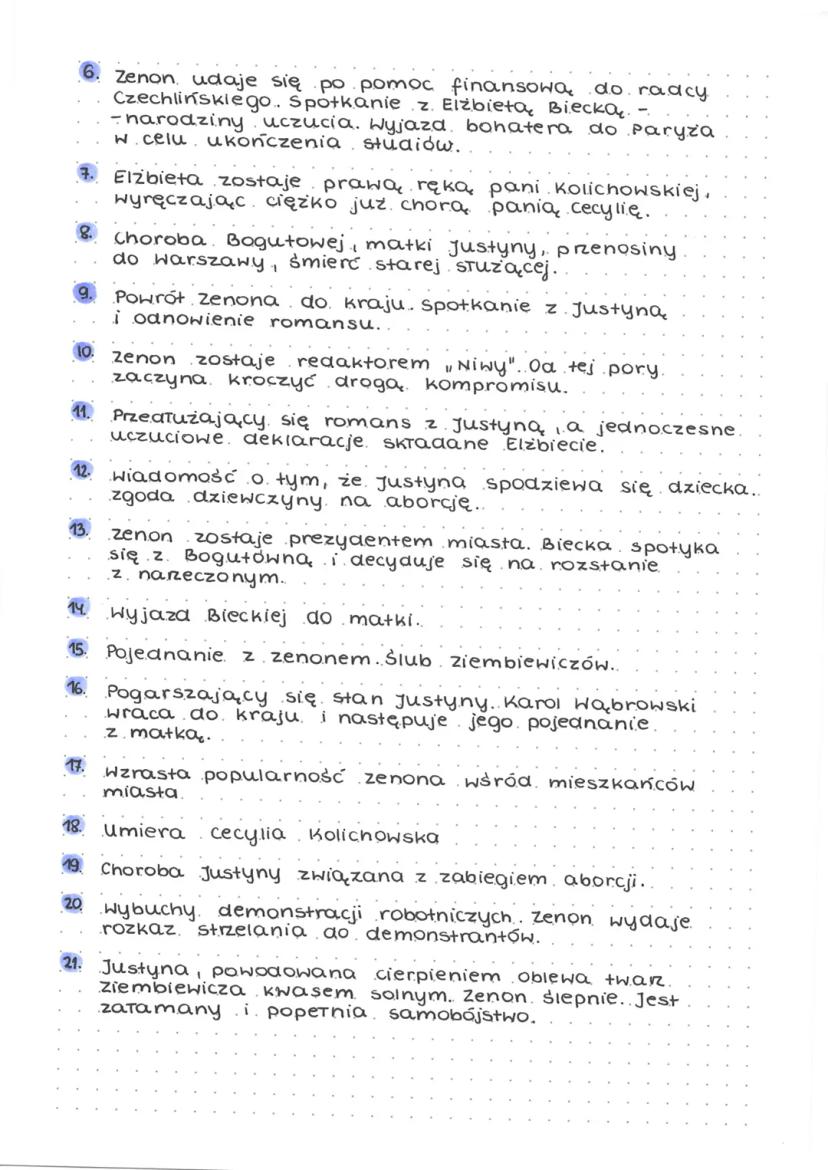 6. Zenon udaje się po pomoc finansową do radcy
Czechlińskiego. Spotkanie z Elżbietą Biecką -
- narodziny uczucia. Wyjazd bohatera do Paryża
w celu ukończenia studiów.
7. Elżbieta zostaje prawą ręką pani Kolichowskiej,
wyręczając ciężko już chorą panią Cecylię.
8. Choroba Bogutowej, matki Justyny, przenosiny
do Warszawy, śmierć starej służącej.
9. Powrót Zenona do kraju. Spotkanie z Justyną
i odnowienie romansu.
10. Zenon zostaje redaktorem „Niwy". Od tej pory
zaczyna kroczyć drogą kompromisu.
11. Przedłużający się romans z Justyną, a jednoczesne
uczuciowe deklaracje składane Elżbiecie.
12. Wiadomość o tym, że Justyna spodziewa się dziecka.
zgoda dziewczyny na aborcję.
13. Zenon zostaje prezydentem miasta. Biecka spotyka
się z Bogutówną i decyduje się na rozstanie
z narzeczonym.
14. Wyjazd Bieckiej do matki.
15. Pojednanie z Zenonem. Ślub Ziembiewiczów.
16. Pogarszający się stan Justyny. Karol Wąbrowski
wraca do kraju i następuje jego pojednanie
z matką.
17. Wzrasta popularność Zenona wśród mieszkańców
miasta
18. Umiera Cecylia Kolichowska
19. Choroba Justyny związana z zabiegiem aborcji.
20. Wybuchy demonstracji robotniczych. Zenon wydaje
rozkaz strzelania do demonstrantów.
21. Justyna, powodowana cierpieniem oblewa twarz
Ziembiewicza kwasem solnym. Zenon ślepnie. Jest
załamany i popełnia samobójstwo.